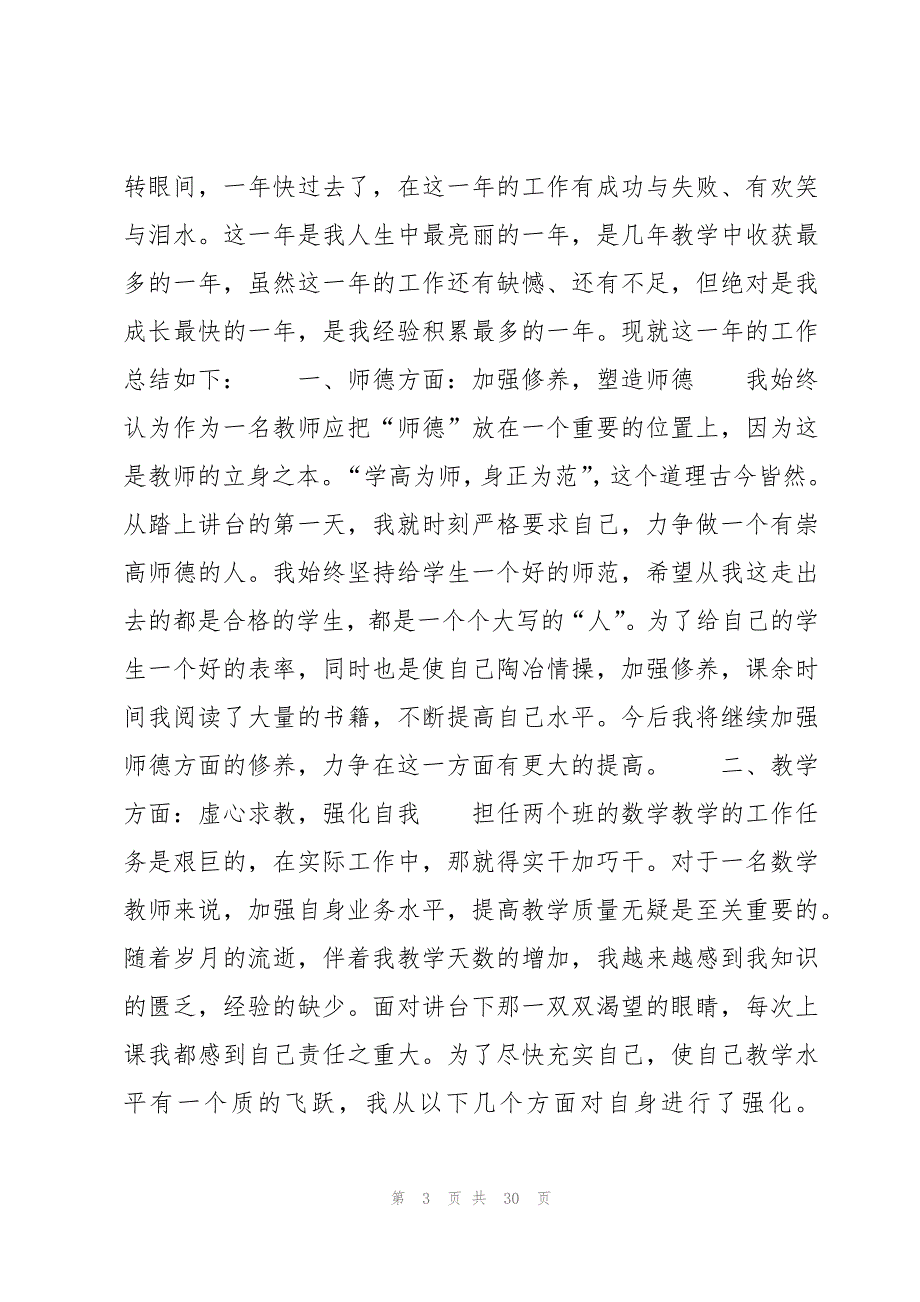 转眼间，一年快过去了，在这一年的工作有成功与失败、有欢笑
与泪水。这一年是我人生中最亮丽的一年，是几年教学中收获最
多的一年，虽然这一年的工作还有缺憾、还有不足，但绝对是我
成长最快的一年，是我经验积累最多的一年。现就这一年的工作
总结如下：　　一、师德方面：加强修养，塑造师德　　我始终
认为作为一名教师应把“师德”放在一个重要的位置上，因为这
是教师的立身之本。“学高为师，身正为范”，这个道理古今皆然。
从踏上讲台的第一天，我就时刻严格要求自己，力争做一个有崇
高师德的人。我始终坚持给学生一个好的师范，希望从我这走出
去的都是合格的学生，都是一个个大写的“人”。为了给自己的学
生一个好的表率，同时也是使自己陶冶情操，加强修养，课余时
间我阅读了大量的书籍，不断提高自己水平。今后我将继续加强
师德方面的修养，力争在这一方面有更大的提高。　　二、教学
方面：虚心求教，强化自我　　担任两个班的数学教学的工作任
务是艰巨的，在实际工作中，那就得实干加巧干。对于一名数学
教师来说，加强自身业务水平，提高教学质量无疑是至关重要的。
随着岁月的流逝，伴着我教学天数的增加，我越来越感到我知识
的匮乏，经验的缺少。面对讲台下那一双双渴望的眼睛，每次上
课我都感到自己责任之重大。为了尽快充实自己，使自己教学水
平有一个质的飞跃，我从以下几个方面对自身进行了强化。
第 3 页 共 30 页